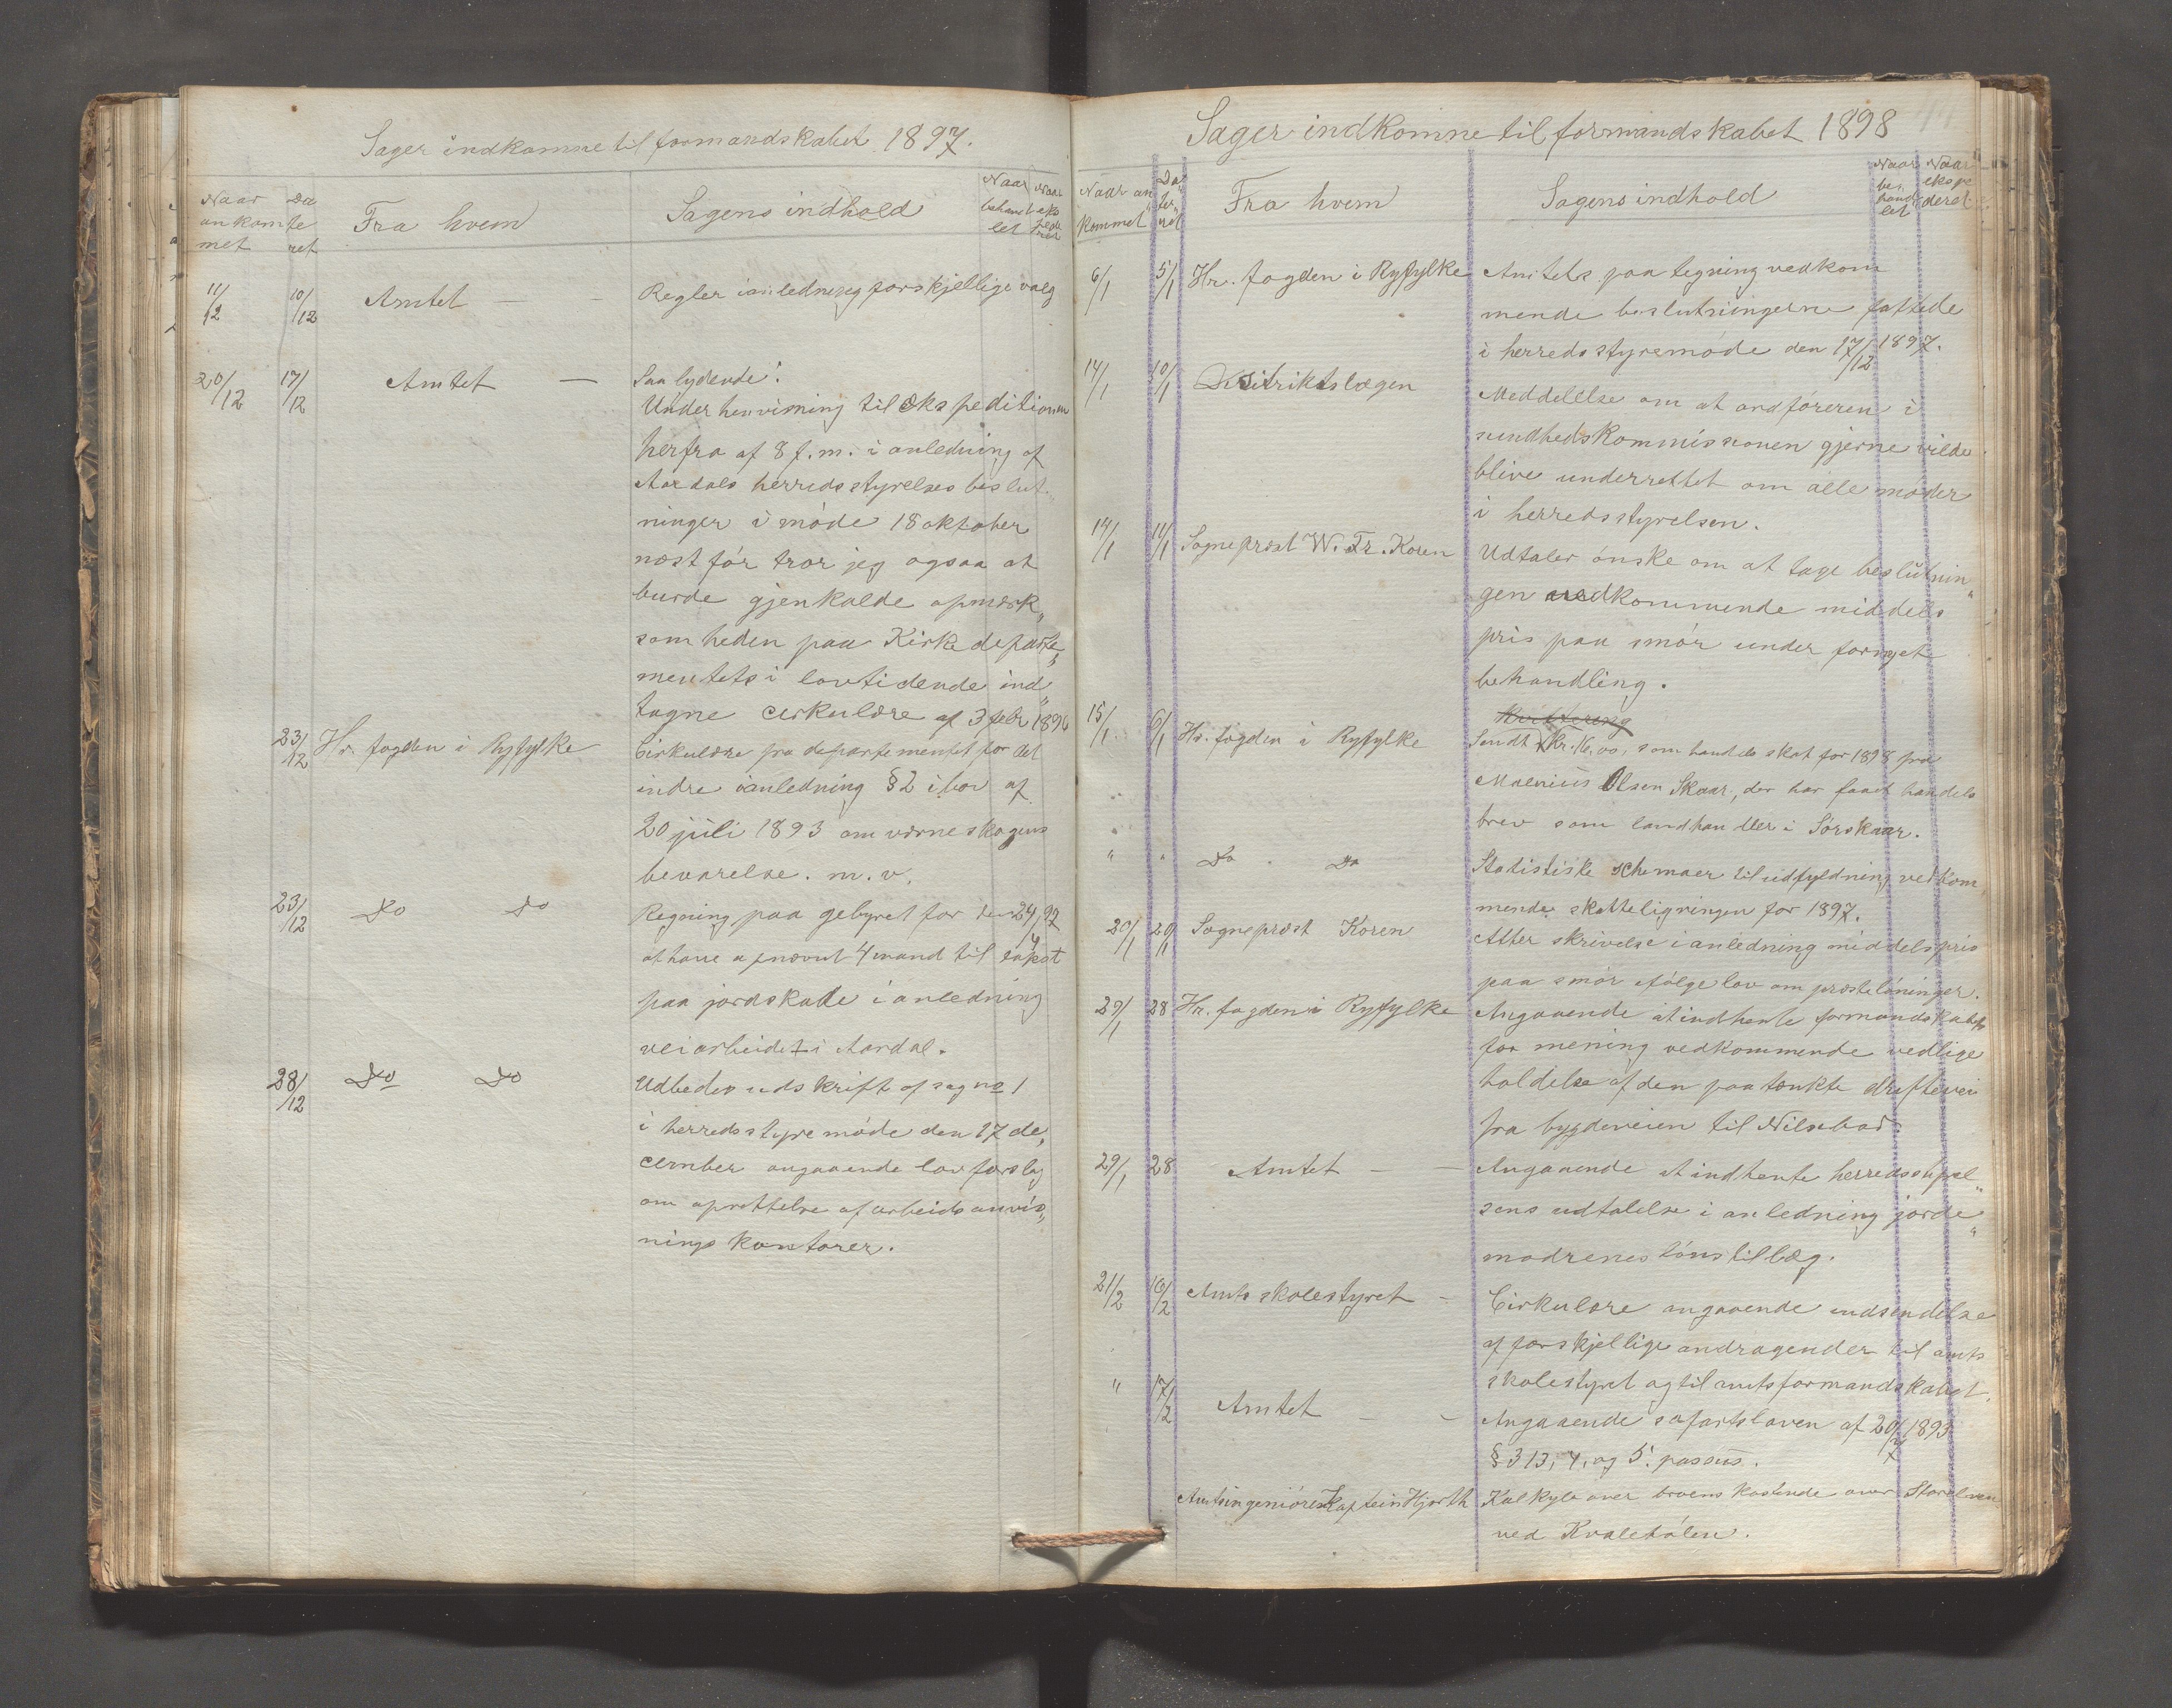 Sager indkomne til formandskabet 1897.
Naar ankommet
Dateret
Fra hvem
Sagens indhold
Naar behandlet
Naar ekspederet
11/12 10/12 Amtet — — Regler i anledning forskjellige valg
20/12 17/12 Amtet — Saa lydende:
Under henvisning til ekspeditionen
herfra af 8 f. m. i anledning af
Aardals herredsstyrelses beslut„
ninger i møde 18 oktober
næst før tror jeg ogsaa at
burde gjenkalde opmærk„
somheden paa Kirkedeparte„
mentets i lovtidende ind„
tagne cirkulære af 3 febr 1896
23/12 Hr. fogden i Ryfylke Cirkulære fra departementet for det
indre i anledning § 2 i lov af
20 juli 1893 om værneskogens
bevarelse. m. v.
23/12 Do Do Regning paa gebyret for den 24/9 97
at have opnævnt 4 mand til takst
paa jordskade i anledning
veiarbeidet i Aardal.
28/12 Do Do Udbedes udskrift af sag no 1
i herredsstyremøde den 17 de„
cember angaaende lovforslag
om oprettelse af arbeidsanvis„
nings kontorer.
Sager indkomne til formandskabet 1898
Naar ankommet
Dateret
Fra hvem
Sagens indhold
Naar behandlet
Naar ekspederet
6/1 5/1 Hr. fogden i Ryfylke Amtets paategning vedkom
mende beslutningerne fattede
i herredsstyremøde den 17/12 1897.
14/1 10/1 Distriktslægen Meddelelse om at ordføreren i
sundhedskommissionen gjerne vilde
blive underrettet om alle møder
i herredsstyrelsen.
14/1 11/1 Sogneprest W. Fr. Koren Udtaler ønske om at tage beslutnin„
gen vedkommende middels
pris paa smør under fornyet
behandling.
Kvittering
15/1 6/1 Hr. fogden i Ryfylke Sendt Kr. 16.00, som handels skat for 1898 fra
Maenius Olsen Skaar, der har faaet handels
brev som landhandler i Sørskaar.
" " Do Do Statistiske schemaer til udfyldning vedkom„
mende skatteligningen for 1897.
20/1 20/1 Sogneprest Koren Atter skrivelse i anledning middelspris
paa smør ifølge lov om presteløninger.
29/1 28 Hr. fogden i Ryfylke Angaaende at indhente formandskabets
for mening vedkommende vedlige
holdelse af den paatænkte driftevei
fra bygdeveien til Nilsebu.
29/1 28 Amtet — — Angaaende at indhente herredsstyrel„
sens udtalelse i anledning jorde„
modrenes lønstillæg.
21/2 16/2 Amtsskolestyret — Cirkulære angaaende indsendelse
af forskjellige andragender til amts
skolestyret og til amtsformandskabet.
" 17/2 Amtet — — Angaaende søfartsloven af 20/7 1893
§ 313, 4. og 5. passus.
Amtsingeniøren Kaptein Hjorth Kalkyle over broens kostende over Storelven
ved Kvalehølen.